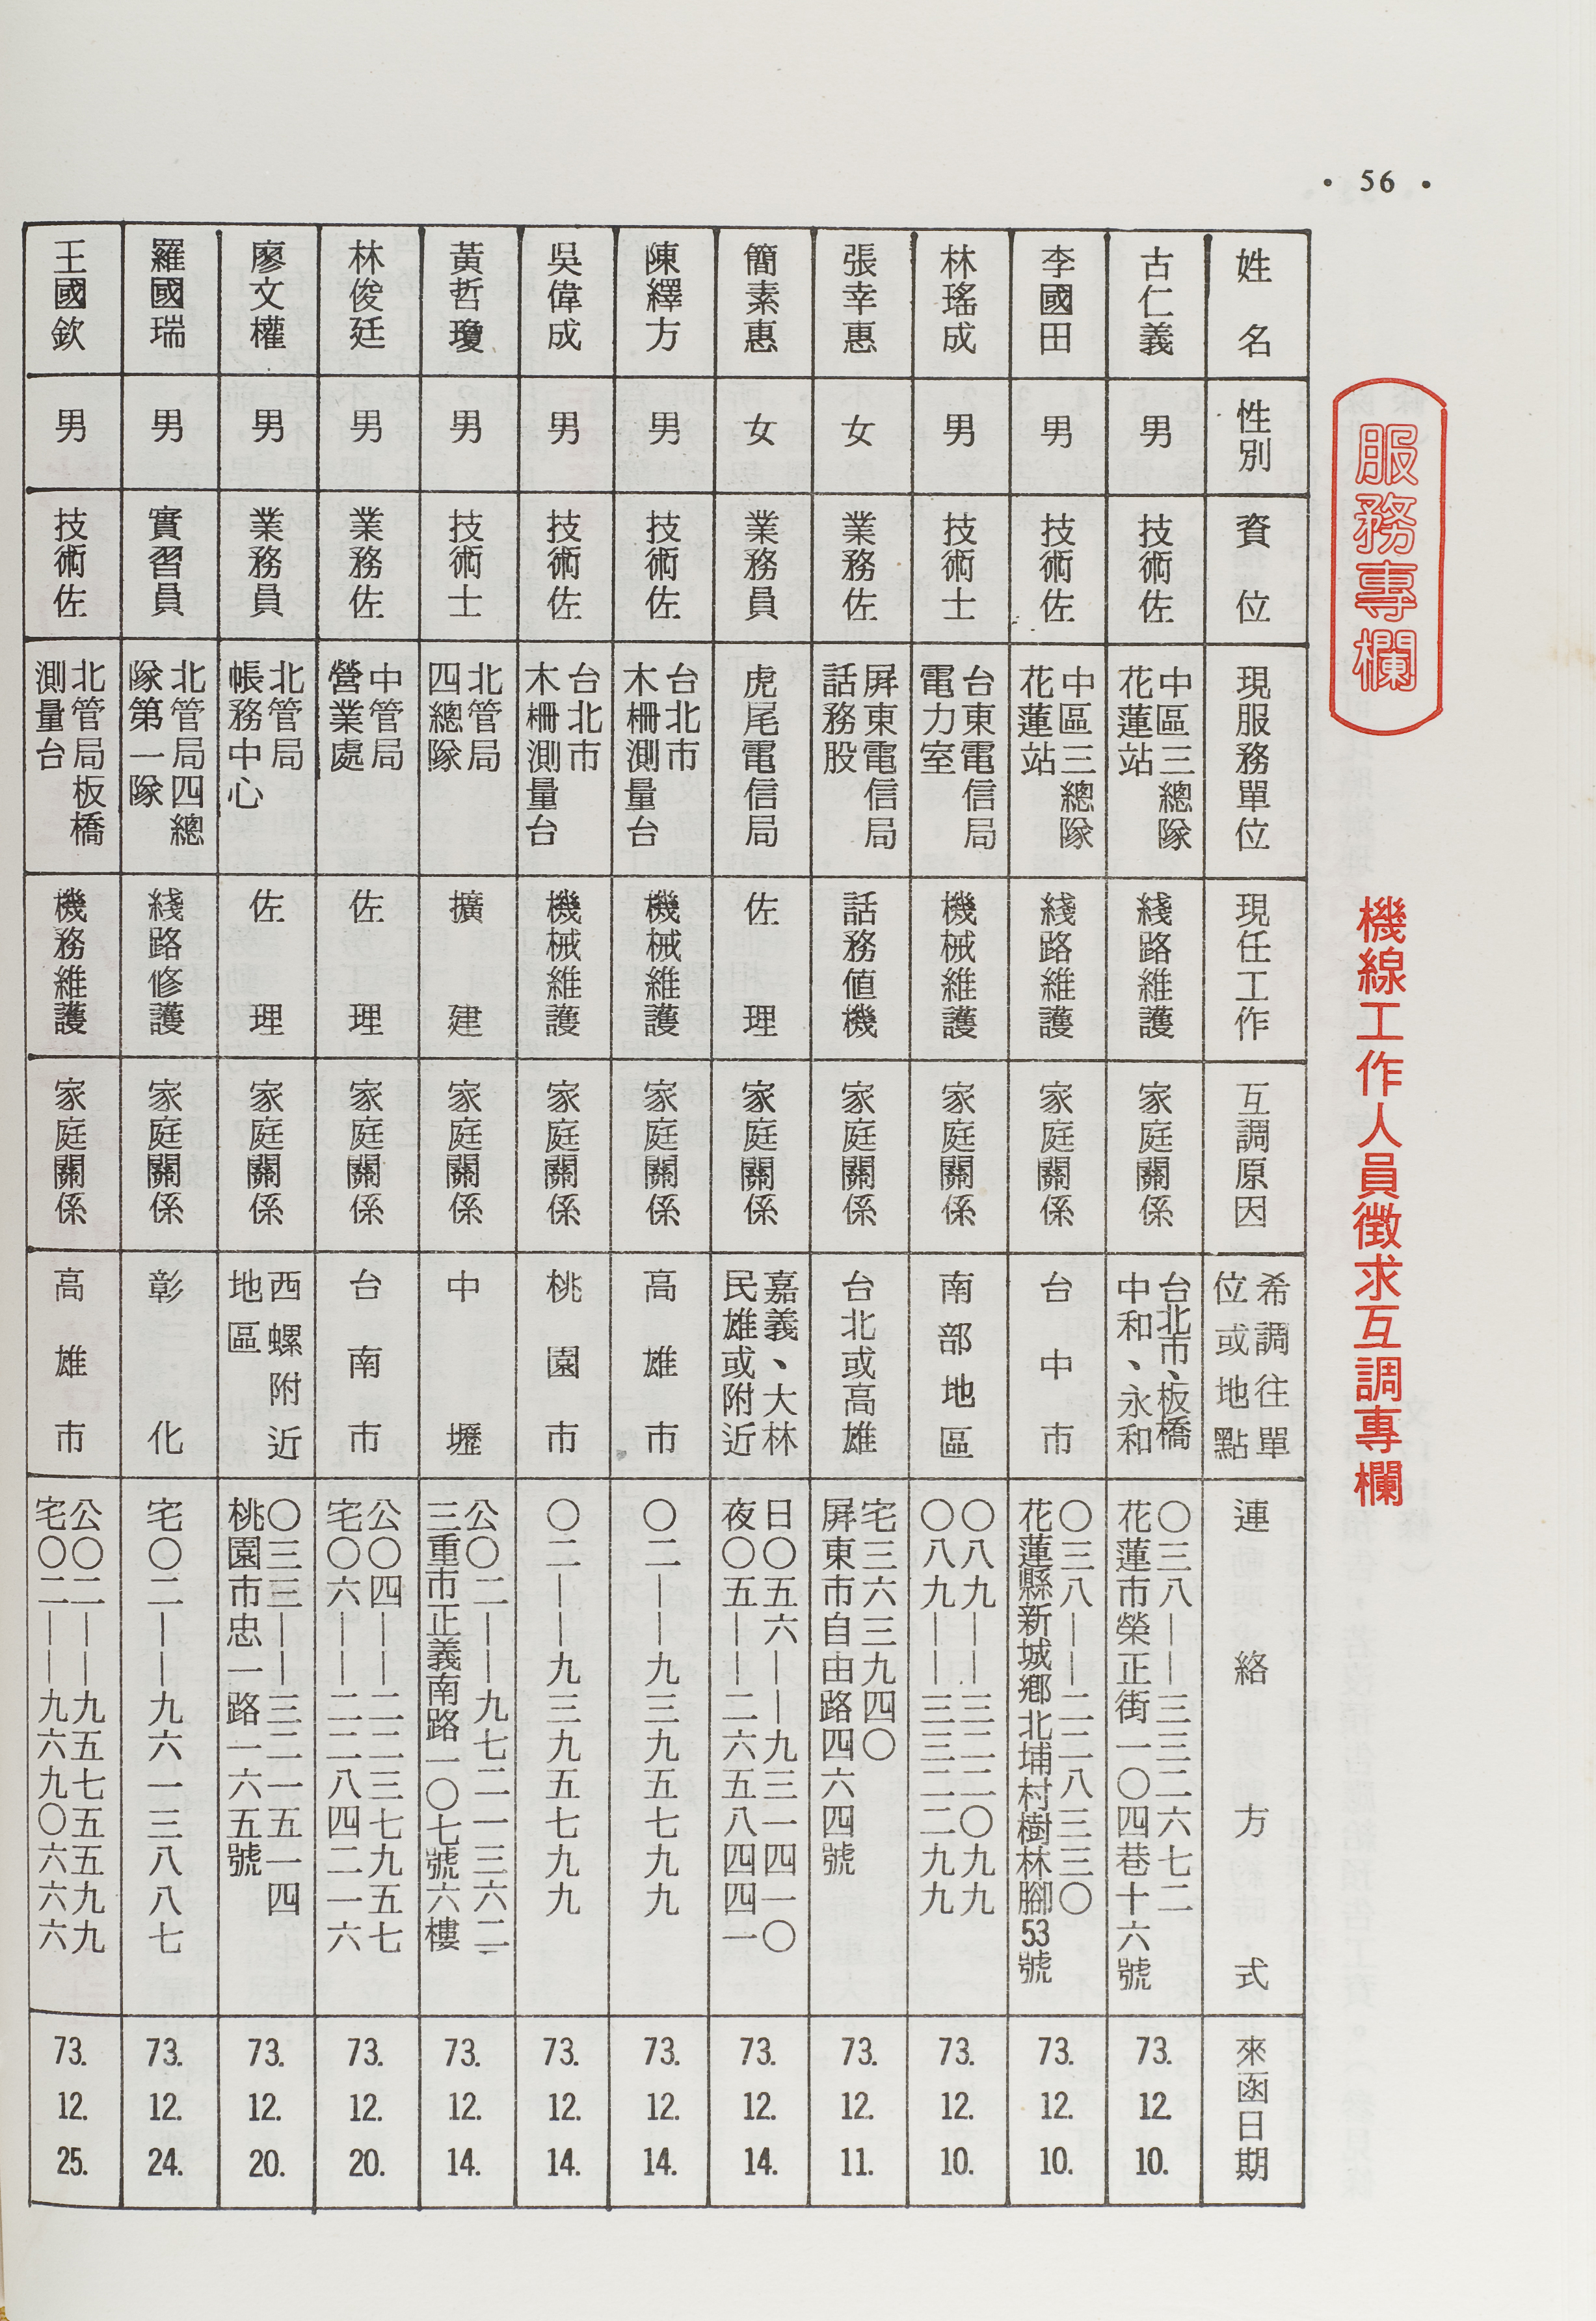 • 56 •
服務專欄
機線工作人員徵求互調專欄
姓名
性別
資位
現服務單位
現任工作
互調原因
希調往單
位或地點
連絡方式
來函日期
古仁義
男
技術佐
中區三總隊
花蓮站
綫路維護
家庭關係
台北市、板橋
中和、永和
〇三八——三三二六七二
花蓮市榮正街一〇四巷十六號
73.12.10.
李國田
男
技術佐
中區三總隊
花蓮站
綫路維護
家庭關係
台中市
〇三八——二二八三三〇
花蓮縣新城鄉北埔村樹林腳53號
73.12.10.
林瑤成
男
技術士
台東電信局
電力室
機械維護
家庭關係
南部地區
〇八九——三二二〇九九
〇八九——三三二二九九
73.12.10.
張幸惠
女
業務佐
屏東電信局
話務股
話務值機
家庭關係
台北或高雄
宅三六三九四〇
屏東市自由路四六四號
73.12.11.
簡素惠
女
業務員
虎尾電信局
佐理
家庭關係
嘉義、大林
民雄或附近
日〇五六——九三一四一〇
夜〇五——二六五八四四一
73.12.14.
陳繹方
男
技術佐
台北市
木柵測量台
機械維護
家庭關係
高雄市
〇二——九三九五七九九
73.12.14.
吳偉成
男
技術佐
台北市
木柵測量台
機械維護
家庭關係
桃園市
〇二——九三九五七九九
73.12.14.
黃哲瓊
男
技術士
北管局
四總隊
擴建
家庭關係
中壢
公〇二——九七二一三六二
三重市正義南路一〇七號六樓
73.12.14.
林俊廷
男
業務佐
中管局
營業處
佐理
家庭關係
台南市
公〇四——二二三七九五七
宅〇六——二二八四二一六
73.12.20.
廖文權
男
業務員
北管局
帳務中心
佐理
家庭關係
西螺附近
地區
〇三三——三二一五一四
桃園市忠一路一六五號
73.12.20.
羅國瑞
男
實習員
北管局四總
隊第一隊
綫路修護
家庭關係
彰化
宅〇二——九六一三八八七
73.12.24.
王國欽
男
技術佐
北管局板橋
測量台
機務維護
家庭關係
高雄市
公〇二——九五七五五九九
宅〇二——九六九〇六六六
73.12.25.